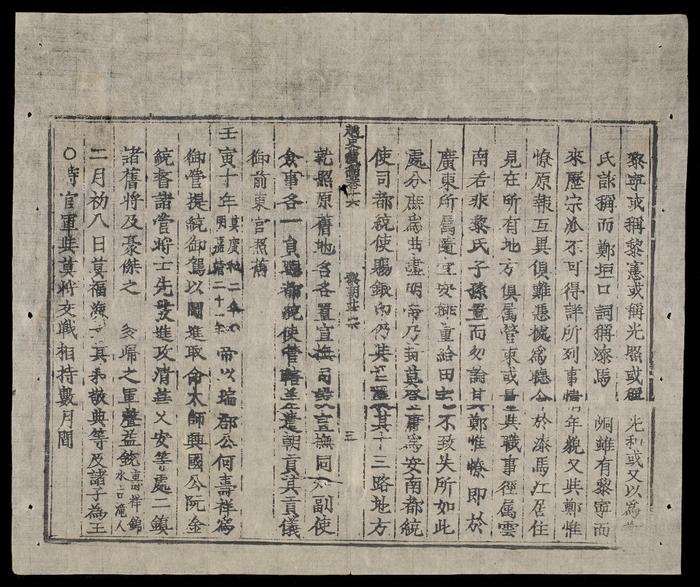 黎寧或稱黎憲或稱光照或稱光和或又以爲
氏詼稱而鄭垣口詞稱漆馬峒雖有黎寧而
來歷宗派不可得詳所列事情年貌又與鄭惟
憭原報互異俱難憑據爲聽令於漆馬江居住
見在所有地方俱属管束或量與職事徑属雲
南若非黎氏子孫置而勿論其鄭惟憭即於
廣東所属隨宜安排重給田宅不致失所如此
處分庶爲曲盡明帝乃封莫登庸爲安南都統
使司都統使賜銀印乃其置其十三路地方
越史卷十六
三
乾照原舊地名各置宣撫司設宣撫同知副使
僉事各一員聽都統使管轄差遣朝貢其貢儀
御前東宮照舊
壬寅十年莫廣和二年明嘉靖二十一年帝以瑞郡公何壽祥爲
御營提統御駕以圖進取命太師興國公阮金
統督諸營將士先發進攻清華乂安等處一鎮
諸舊將及豪傑之多歸之軍聲益銳壽祥錦水古滝人
二月初八日莫福海其弟敬典等及諸子為王
○時官軍與莫將交戰相持數月間